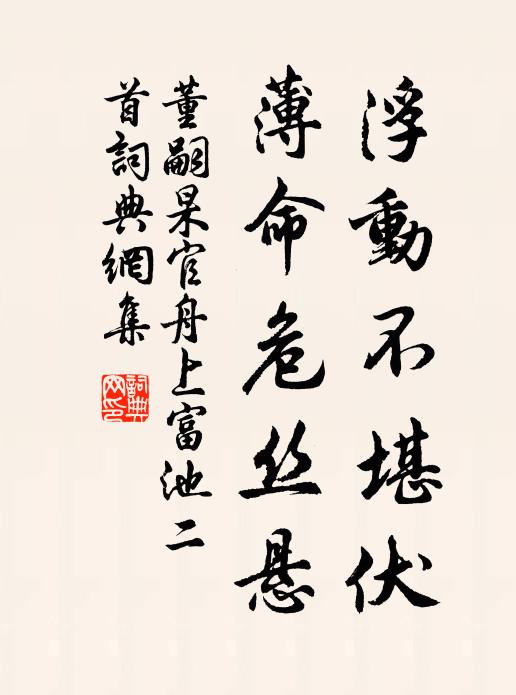 浮動不堪伏
薄命危丝悬
董嗣杲官舟上富池二
首詞典網集
詞典網印